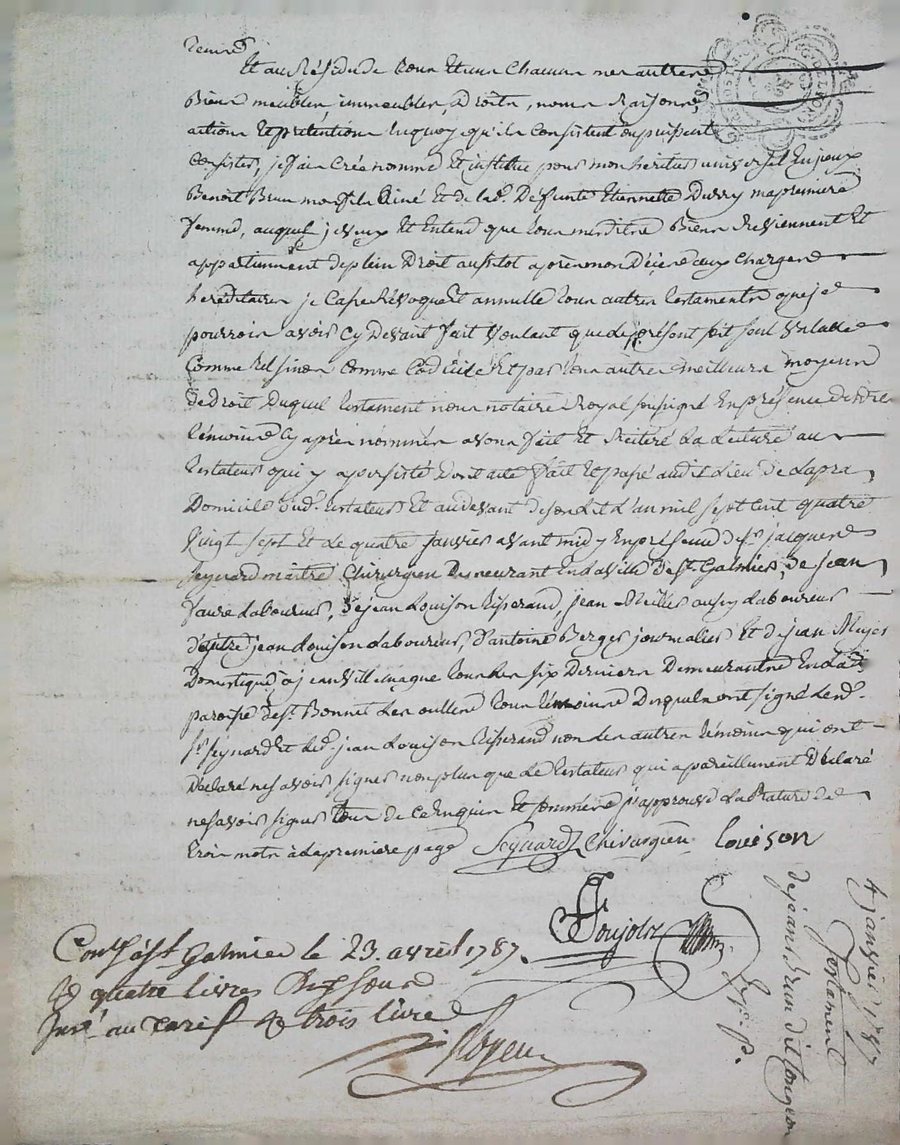 Et au Résidu de tous et un chacuns mes autres
Biens meubles immeubles, Droits, noms Raisons,
actions et prétentions en quoy qu'ils consistent ou puissent
consister, j'ai créé nommé et institué pour mon heritier universel
Benoit Brun mon fils ainé et de lad. Défunte Etiennette Durry ma première
femme, auquel je veux et Entend que tous mesdits Biens Reviennent et
appartiennent de plein Droit aussitot après mon Décès aux charges
héréditaires je Casse Révoque et annulle tous autres testaments que je
pourrois avoir cy Devant fait voulant que le présent soit seul valable
Comme tel sinon comme Codicile et par tous autres meilleurs moyens
de Droit Duquel testament nous notaire Royal soussigné En présence desdits
témoins Cy après nommés avons fait et Réitéré la lecture au
testateur qui y a persisté Dont acte fait et passé audit Lieu de Lapra
Domicile dud. testateur et audevant de son lit L'an mil sept cent quatre
vingt sept et le quatre janvier avant midy En présence de sr. jacques
Seynard maitre chirurgien Demeurant En la ville de st. Galmier, de jean
faure laboureur, de jean Louison Risperand, jean Meiller aussy laboureur
d'autre jean Louison laboureur, d'antoine Berger journalier et de jean
Domestique à jean tous les six Derniers Demeurants En lad.
paroisse de st. Bonnet les oulles tous témoins Desquels ont signé led.
sr. Seynard et led. jean Louison Risperand non les autres témoins qui ont
Déclaré ne savoir signer non plus que le testateur qui a pareillement Déclaré
ne savoir signer tous de ce Enquis et sommés j'approuve la Rature de
trois mots à la première page Seynard Chirurgien Louison
Soujolz
Conlé à st. Galmier le 23 avril 1787.
R quatre livres Dix sous
Insé. au tarif R trois livres
Royer
4 janvier 1787
Testament
de jean Brun dit Longeon
Exp. p.